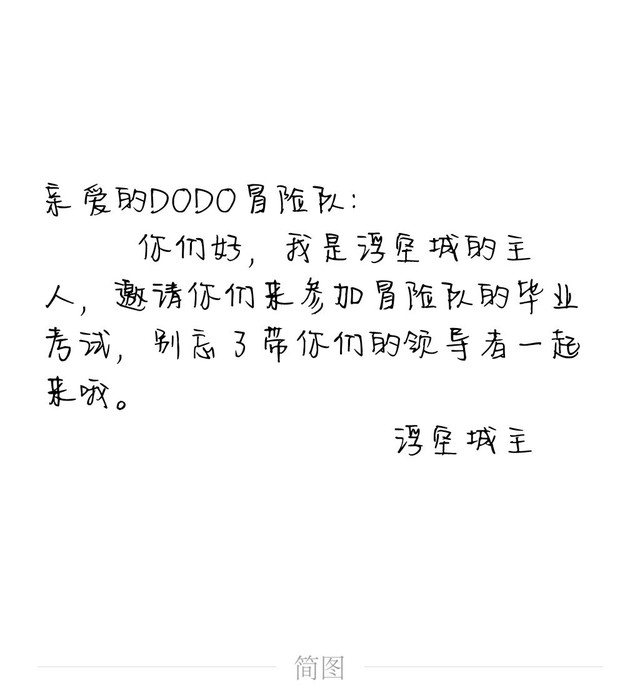 亲爱的DODO冒险队:
你们好，我是浮空城的主
人，邀请你们来参加冒险队的毕业
考试，别忘了带你们的领导者一起
来哦。
浮空城主
简图